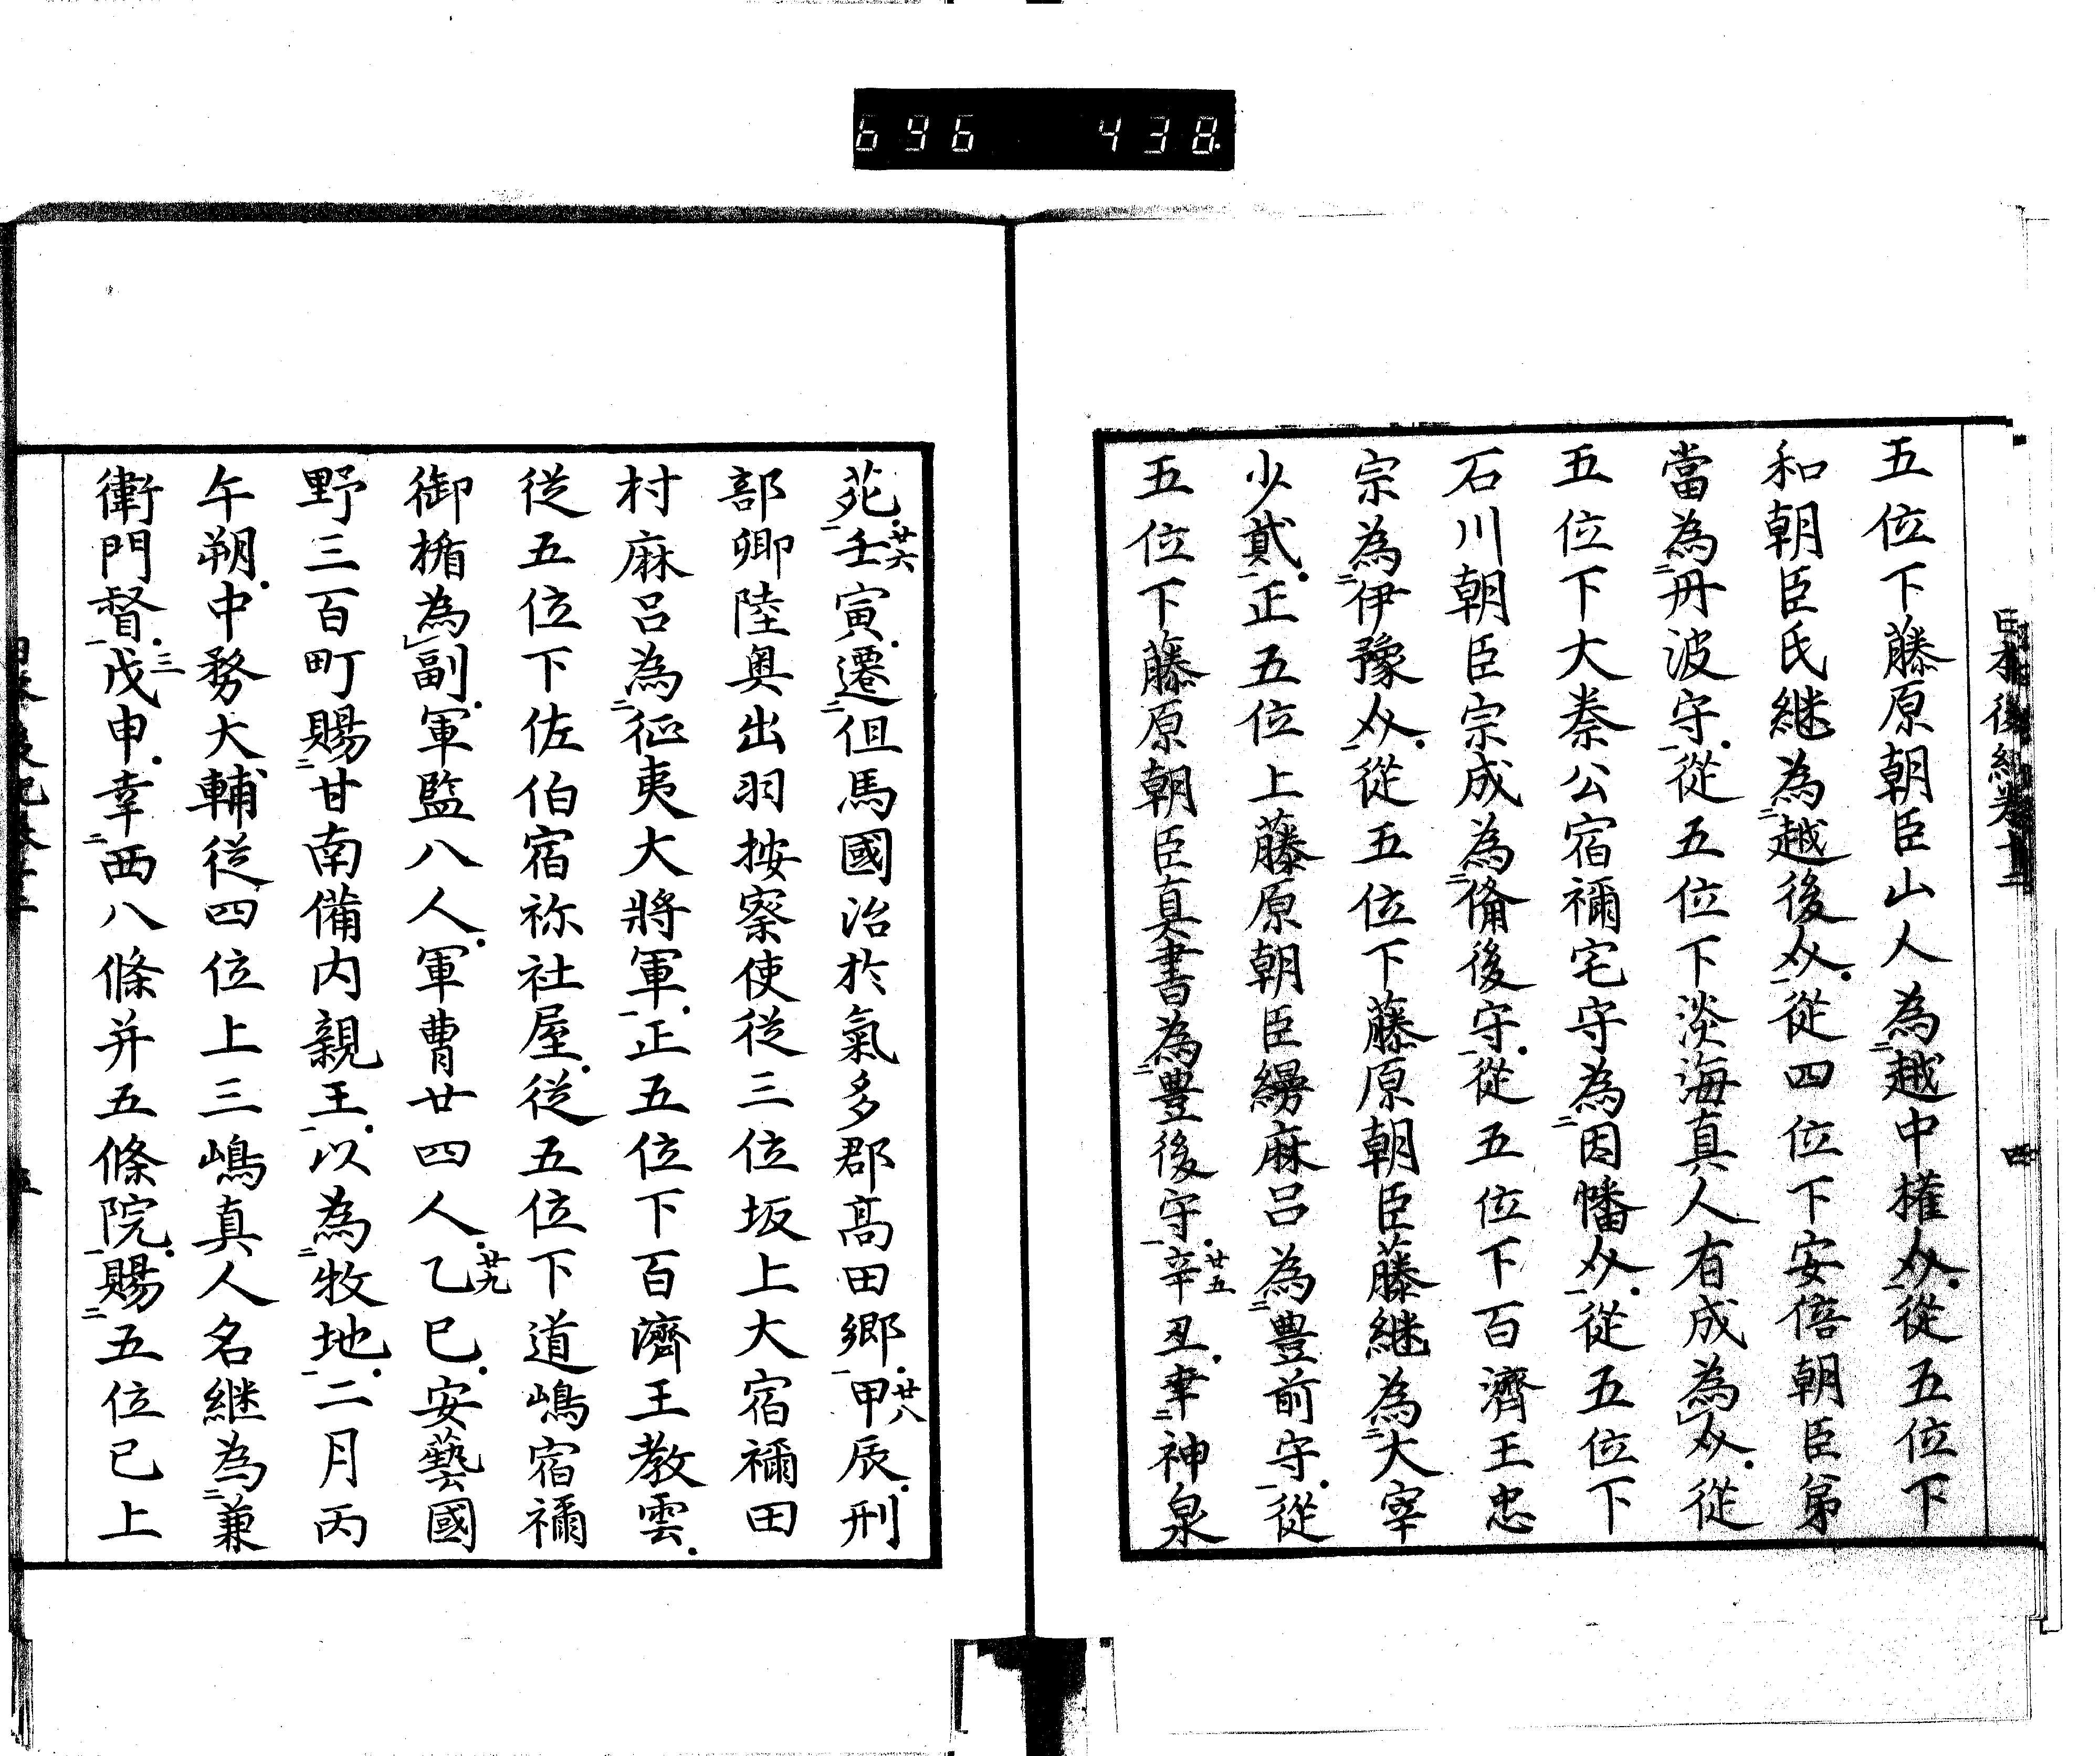 696 438
日本後紀卷十二 四
五位下藤原朝臣山人為二越中權介一從五位下
和朝臣氏継為二越後介一從四位下安倍朝臣弟
當為二丹波守一從五位下淡海真人有成為介從
五位下大秦公宿禰宅守為二因幡介一從五位下
石川朝臣宗成為二備後守一從五位下百濟王忠
宗為二伊豫介一從五位下藤原朝臣藤継為二大宰
少貳一正五位上藤原朝臣縵麻呂為二豊前守一從
五位下藤原朝臣真書為二豊後守一辛廿五丑幸二神泉
苑一壬廿六寅遷二但馬國治於氣多郡高田郷一甲廿八辰刑
部卿陸奥出羽按察使從三位坂上大宿禰田
村麻呂為二征夷大將軍一正五位下百濟王教雲
從五位下佐伯宿祢社屋從五位下道嶋宿禰
御楯為副軍監八人軍曹廿四人乙廿九巳安藝國
野三百町賜二甘南備内親王一以為二牧地一二月丙
午朔中務大輔從四位上三嶋真人名継為二兼
衛門督一戊三申幸二西八條并五條院一賜二五位已上
日本後紀卷十二 五